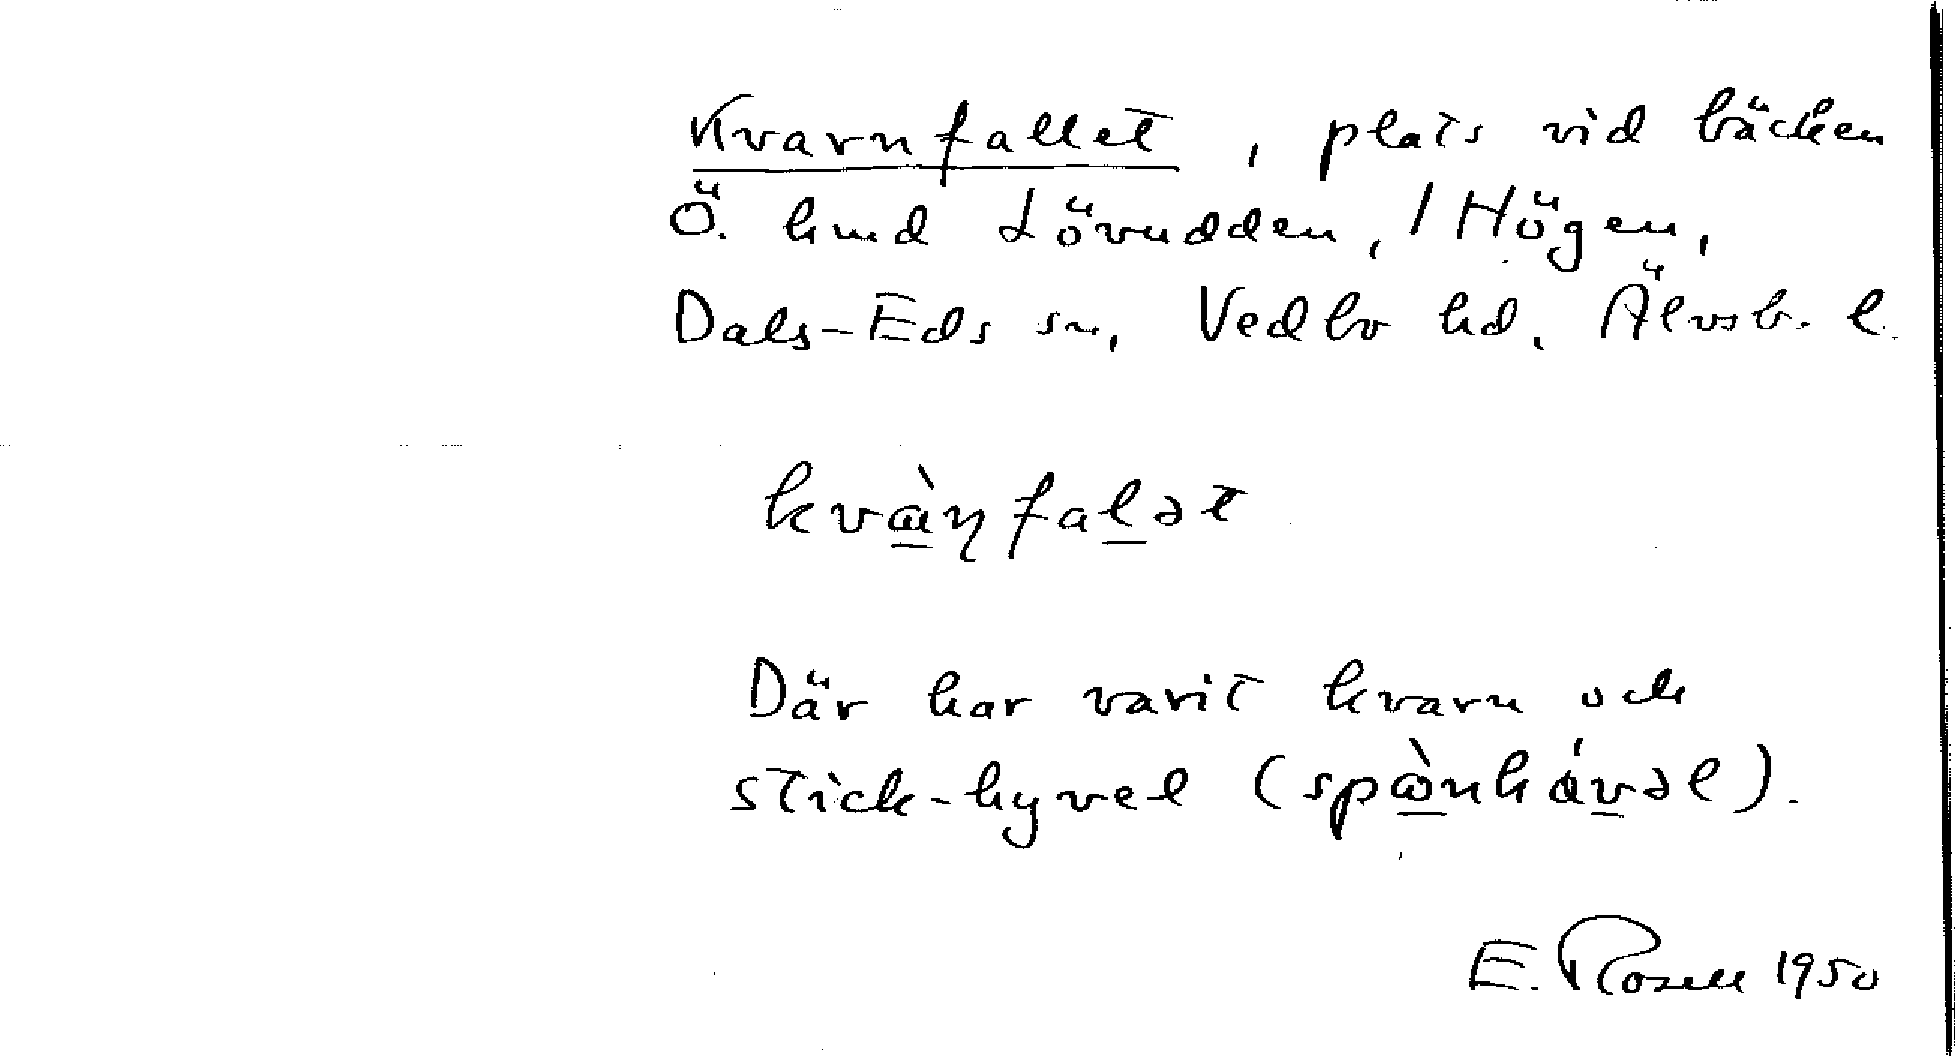 Kvarnfallet, plats vid bäcken
Ö. hmd Lövudden, / Högen,
Dals-Eds sn, Vedbo hd. Älvsb. l.
kvàɳfalət
Där har varit kvarn och
stick-hyvel (spànhávəl).
E. Rosell 1950